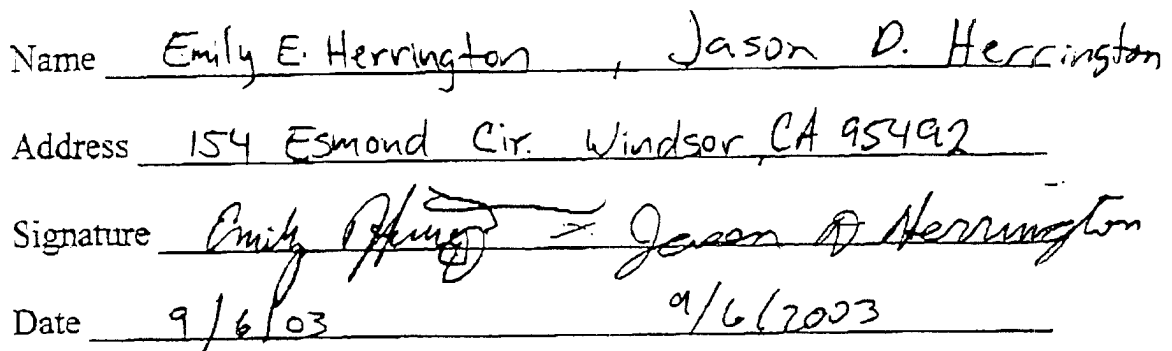 Name Emily E. Herrington, Jason D. Herrington
Address 154 Esmond Cir. Windsor, CA 95492
Signature Emily Jason D Herrington
Date 9/6/03 9/6/2003